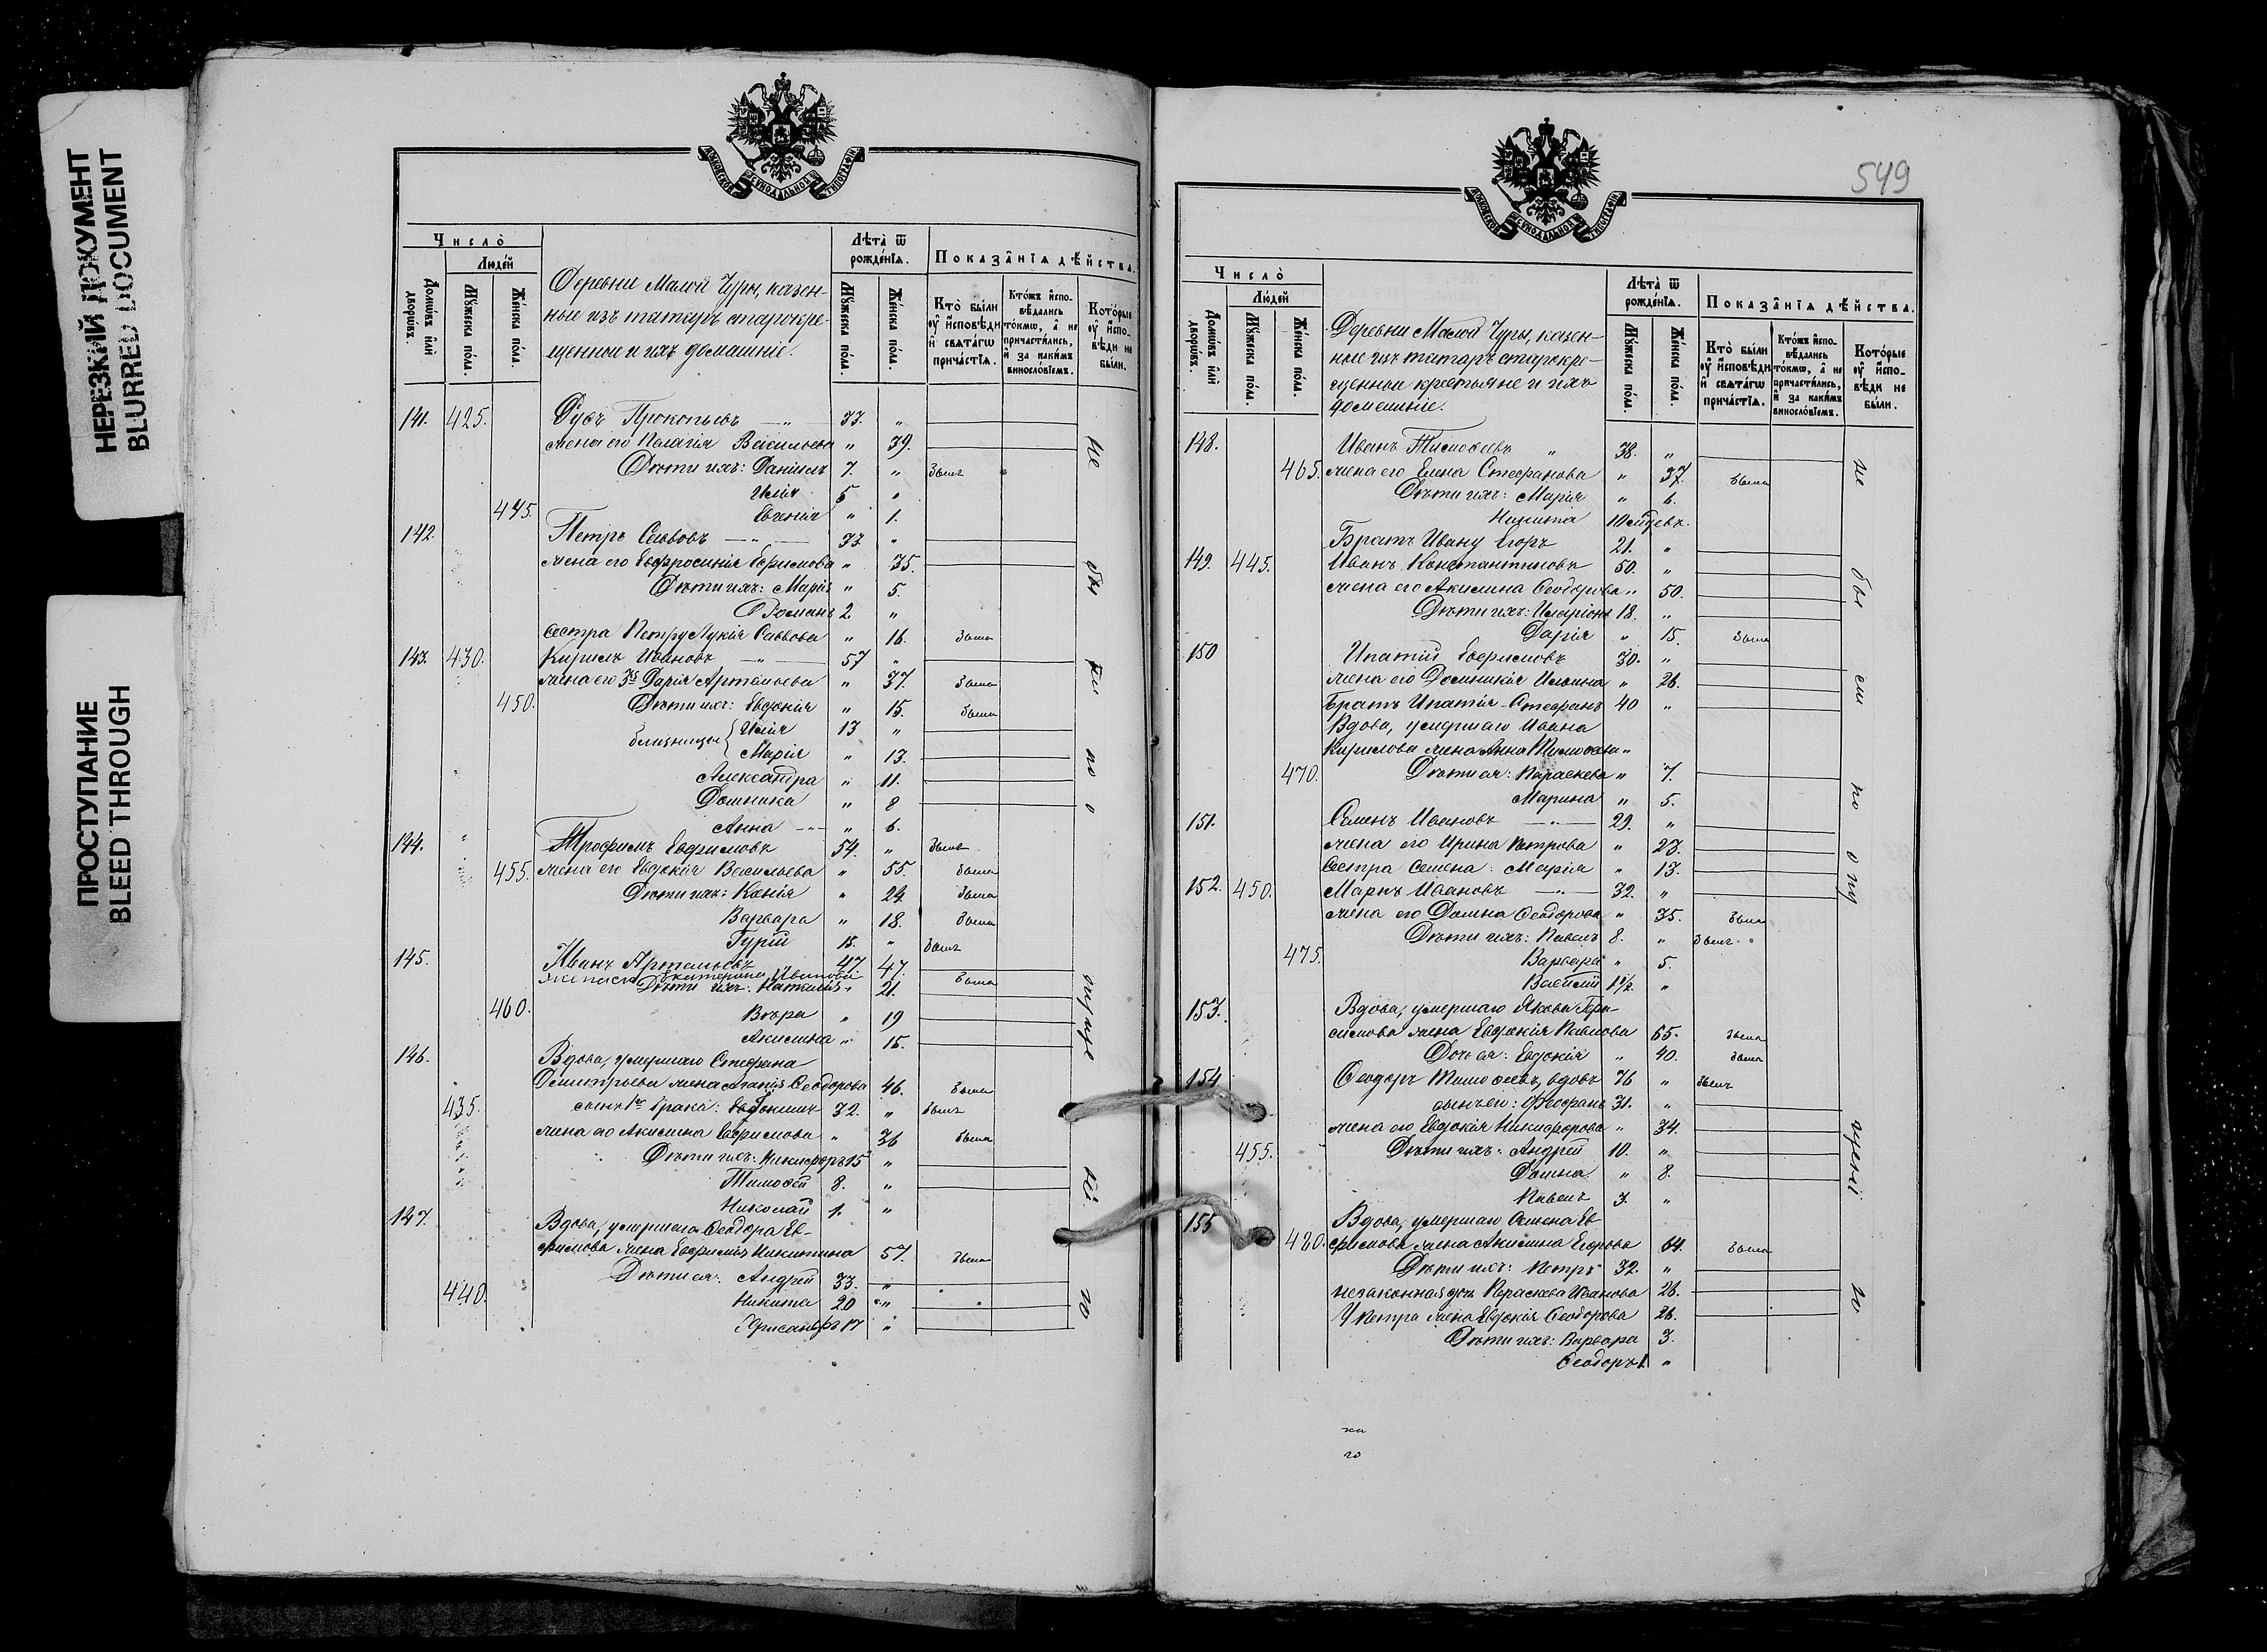 НЕРЕЗКИЙ ДОКУМЕНТ
BLURRED DOCUMENT
ПРОСТУПАНИЕ
BLEED THROUGH
МОСКОВСКОЙ СѴНОДАЛЬНОЙ ТИПОГРАФІИ
Число̀
Людей
Домѡвъ или дворѡвъ.
Мꙋжеска пола.
Женска пола.
Деревни Малой Чуры, казен-
ные изъ татаръ старокре-
щенные и ихъ домашніе.
Лѣта ѿ рожденїѧ.
Мꙋжеска пола.
Женска пола.
Показанїѧ дѣйства.
Кто были ᲂу исповѣди и свѧтагѡ причастїѧ.
Ктожъ исповѣдались токмѡ, а не причастились, и за какимъ винословїемъ.
Которые ᲂу исповѣди не были.
141. 425. Прокопьевъ 33. "
жена его Пелагія Васильева " 39.
Дѣти ихъ: Даніилъ 7. " былъ
Илія 5 "
445. Евгенія " 1.
142. Петръ Саввовъ 33. "
жена его Евфросинія Ефимова " 35.
Дѣти ихъ: Марія " 5.
Романъ 2. "
сестра Петру Лукія Саввова " 16. была
143. 430. Кирилъ Ивановъ 57 "
жена его Дарія Артемьева " 37. была
450. Дѣти ихъ: Евдокія " 15. была
близнецы { Илія 13 "
Марія " 13.
Александра " 11.
Домника " 8
Анна " 6.
144. Трофимъ Евфимовъ 54. " былъ
455. жена его Евдокія Васильева " 55. была
Дѣти ихъ: Ксенія " 24. была
Варвара " 18. была
Гурій 15. " былъ
145. Иванъ Артемьевъ 47
Екатерина Иванова 47. была
Дѣти ихъ: Наталія " 21.
460. Вѣра " 19
Акилина " 15.
146. Вдова, умершаго Стефана
Димитріева жена Феодорова 46. была
435. сынъ 1го брака: Евдокимъ 32. " былъ
жена его Акилина Евфимова " 36 была
Дѣти ихъ: Никифоръ 15 "
Тимофей 8. "
Николай 1. "
147. Вдова, умершаго Феодора Ев-
фимова жена Евфимія Никитина 57. была
Дѣти ея: Андрей 33. "
440. Никита 20 "
Хрисанфъ 17 "
не бы по
549
МОСКОВСКОЙ СѴНОДАЛЬНОЙ ТИПОГРАФІИ
Число̀
Людей
Домѡвъ или дворѡвъ.
Мꙋжеска пола.
Женска пола.
Деревни Малой Чуры, казен-
ные изъ татаръ старокре-
щенные крестьяне и ихъ
домашніе.
Лѣта ѿ рожденїѧ.
Мꙋжеска пола.
Женска пола.
Показанїѧ дѣйства.
Кто были ᲂу исповѣди и свѧтагѡ причастїѧ.
Ктожъ исповѣдались токмѡ, а не причастились, и за какимъ винословїемъ.
Которые ᲂу исповѣди не были.
148. Иванъ Тимофеевъ " 38. "
465. жена его Елена Стефанова " 37. была
Дѣти ихъ: Марія " 6.
Никита 10
Братъ Ивану Егоръ 21. "
149. 445. Иванъ Константиновъ 50. "
жена его Акилина Феодорова " 50.
Дѣти ихъ: Иларіонъ 18. "
Дарія " 15. была
150 Ипатій Евфимовъ 30. "
жена его Домникія Ильина " 26.
Братъ Ипатія Стефанъ 40 "
Вдова, умершаго Ивана
Кирилова жена Анна Тимофеева "
470. Дѣти ея: Параскева " 7.
Марина " 5.
151. Семенъ Ивановъ 29. "
жена его Ирина Петрова " 23.
Сестра Семена: Марія " 13.
152. 450. Маркъ Ивановъ 32. "
жена его Домна Феодорова " 35. была
Дѣти ихъ: Павелъ 8. " былъ
475. Варвара " 5.
Василій 1½. "
153. Вдова, умершаго Якова Гера-
симова жена Евдокія Павлова 65. была
Дочь ея: Евдокія " 40. была
154 Феодоръ Тимофеевъ, вдовъ 76 " былъ
сынъ его: Феофанъ 31. "
жена его Евдокія Никифорова " 34.
455. Дѣти ихъ: Андрей 10. "
Домна " 8.
Павелъ 3. "
155 Вдова, умершаго Семена Ев-
480. фимова жена Акилина Егорова 64. была
Дѣти ихъ: Петръ 32. "
незаконная дочь Параскева Иванова 26.
У Петра жена Евдокія Феодорова 26.
Дѣти ихъ: Варвара 3.
Феодоръ 1. "
не бы ли по опу щені ю